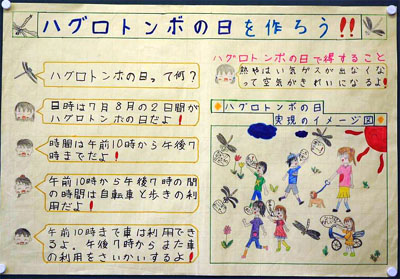 ハグロトンボの日を作ろう!!
ハグロトンボの日って何?
日時は7月8月の2日間が
ハグロトンボの日だよ!
時間は午前10時から午後7
時までだよ!
午前10時から午後7時の間
の時間は自転車と歩きの利
用だよ!
午前10時まで車は利用でき
るよ。午後7時からまた車
の利用をさいかいするよ!
ハグロトンボの日で得すること
熱やはい気ゲスが出なくな
って空気がきれいになるよ!
ハグロトンボの日
実現のイメージ図